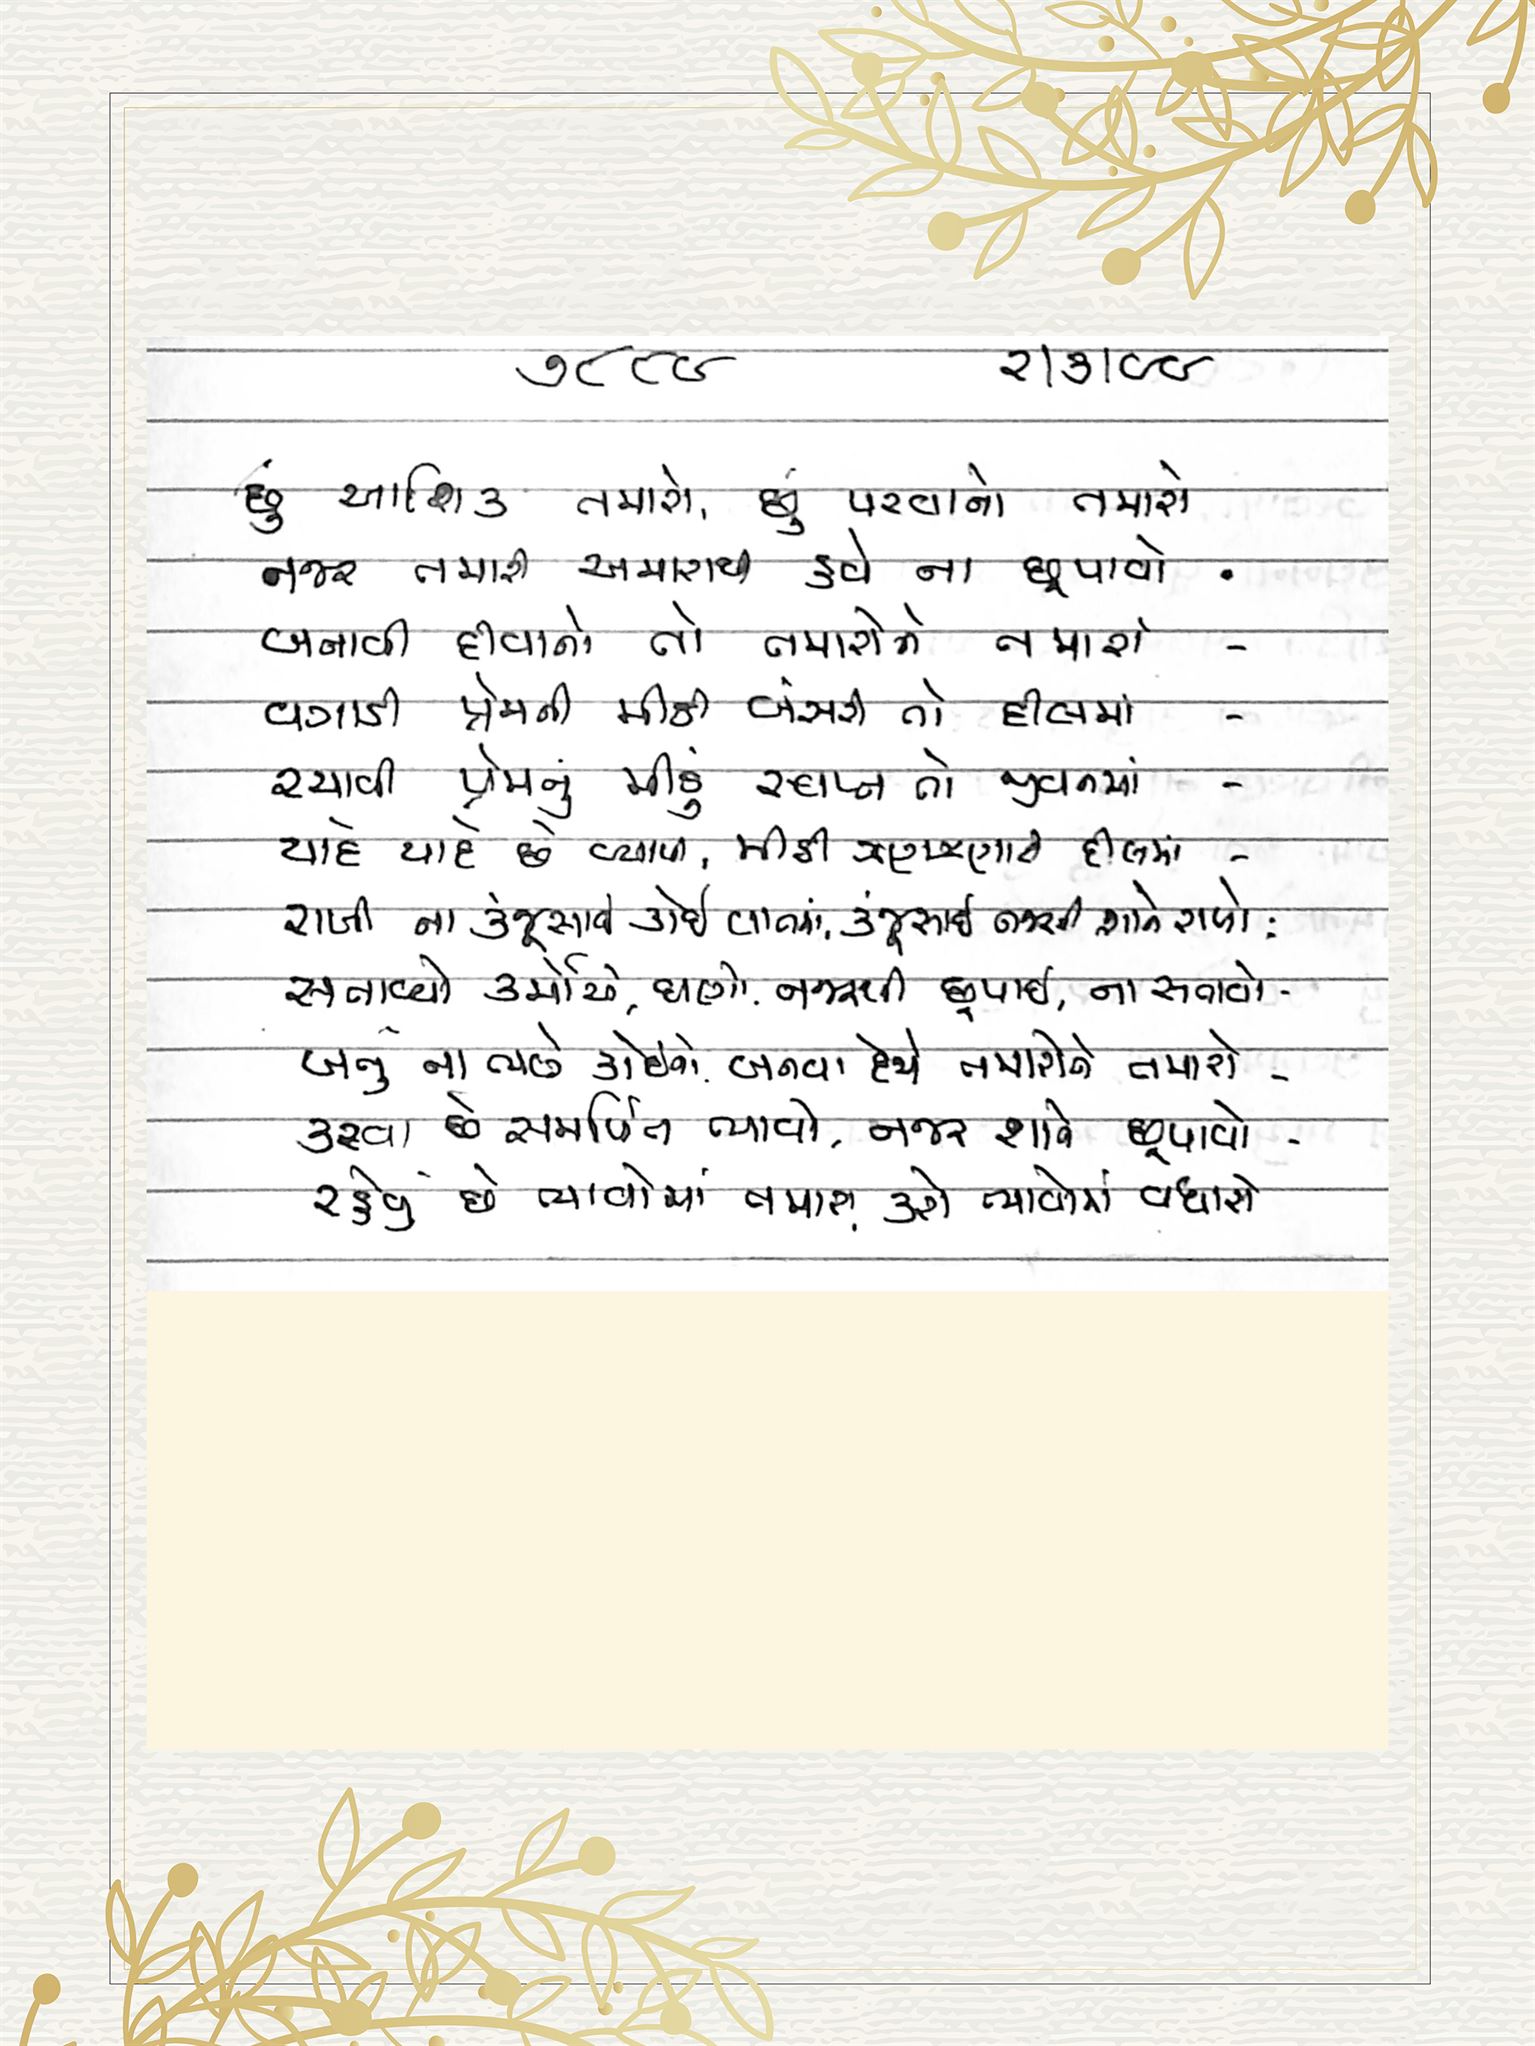 ૭૮૮૯ ૨।૩।૯૯
છું આશિક તમારો, છું પરવાનો તમારો
નજર તમારી અમારાથી હવે ના છૂપાવો .
બનાવી દીવાનો તો તમારોને તમારો -
વગાડી પ્રેમની મીઠી બંસરી તો દીલમાં -
રચાવી પ્રેમનું મીઠું સ્વપ્ન તો જીવનમાં -
યાદે યાદે છે વ્યાપી, મીઠી ઝણઝણાટી દીલમાં -
રાજી ના કંજૂસાઈ કોઈ વાતમાં, કંજૂસાઈ નજરની શાને રાખો :
સતાવ્યો કર્મોએ, ઘણો. નજરથી છૂપાઈ, ના સતાવો -
બનું ના ભલે કોઈનો. બનવા દેજે તમારોને તમારો -
કરવા છે સમર્પિત ભાવો, નજર શાને છૂપાવો -
રહેવું છે ભાવોમાં તમારા, કરો ભાવોમાં વધારો